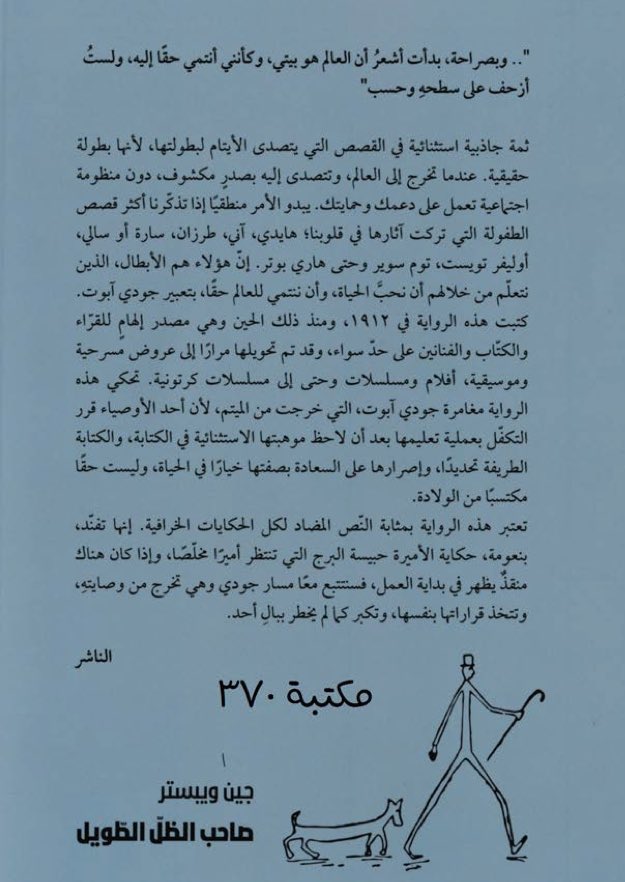 ".. وبصراحة، بدأت أشعرُ أن العالم هو بيتي، وكأنني أنتمي حقًا إليه، ولستُ
أزحف على سطحهِ وحسب"
ثمة جاذبية استثنائية في القصص التي يتصدى الأيتام لبطولتها، لأنها بطولة
حقيقية. عندما تخرج إلى العالم، وتتصدى إليه بصدرٍ مكشوف، دون منظومة
اجتماعية تعمل على دعمك وحمايتك. يبدو الأمر منطقيًا إذا تذكّرنا أكثر قصص
الطفولة التي تركت آثارها في قلوبنا؛ هايدي، آني، طرزان، سارة أو سالي،
أوليفر تويست، توم سوير وحتى هاري بوتر. إنّ هؤلاء هم الأبطال، الذين
نتعلّم من خلالهم أن نحبَّ الحياة، وأن ننتمي للعالم حقًا، بتعبير جودي آبوت.
كتبت هذه الرواية في ١٩١٢، ومنذ ذلك الحين وهي مصدر إلهامٍ للقرّاء
والكتّاب والفنانين على حدّ سواء، وقد تم تحويلها مرارًا إلى عروض مسرحية
وموسيقية، أفلام ومسلسلات وحتى إلى مسلسلات كرتونية. تحكي هذه
الرواية مغامرة جودي آبوت، التي خرجت من الميتم، لأن أحد الأوصياء قرر
التكفّل بعملية تعليمها بعد أن لاحظ موهبتها الاستثنائية في الكتابة، والكتابة
الطريفة تحديدًا، وإصرارها على السعادة بصفتها خيارًا في الحياة، وليست حقًا
مكتسبًا من الولادة.
تعتبر هذه الرواية بمثابة النّص المضاد لكل الحكايات الخرافية. إنها تفنّد،
بنعومة، حكاية الأميرة حبيسة البرج التي تنتظر أميرًا مخلّصًا، وإذا كان هناك
منقذٌ يظهر في بداية العمل، فسنتتبع معًا مسار جودي وهي تخرج من وصايتهِ،
وتتخذ قراراتها بنفسها، وتكبر كما لم يخطر ببالِ أحد.
الناشر
مكتبة ٣٧٠
جين ويبستر
صاحب الظلّ الطّويل